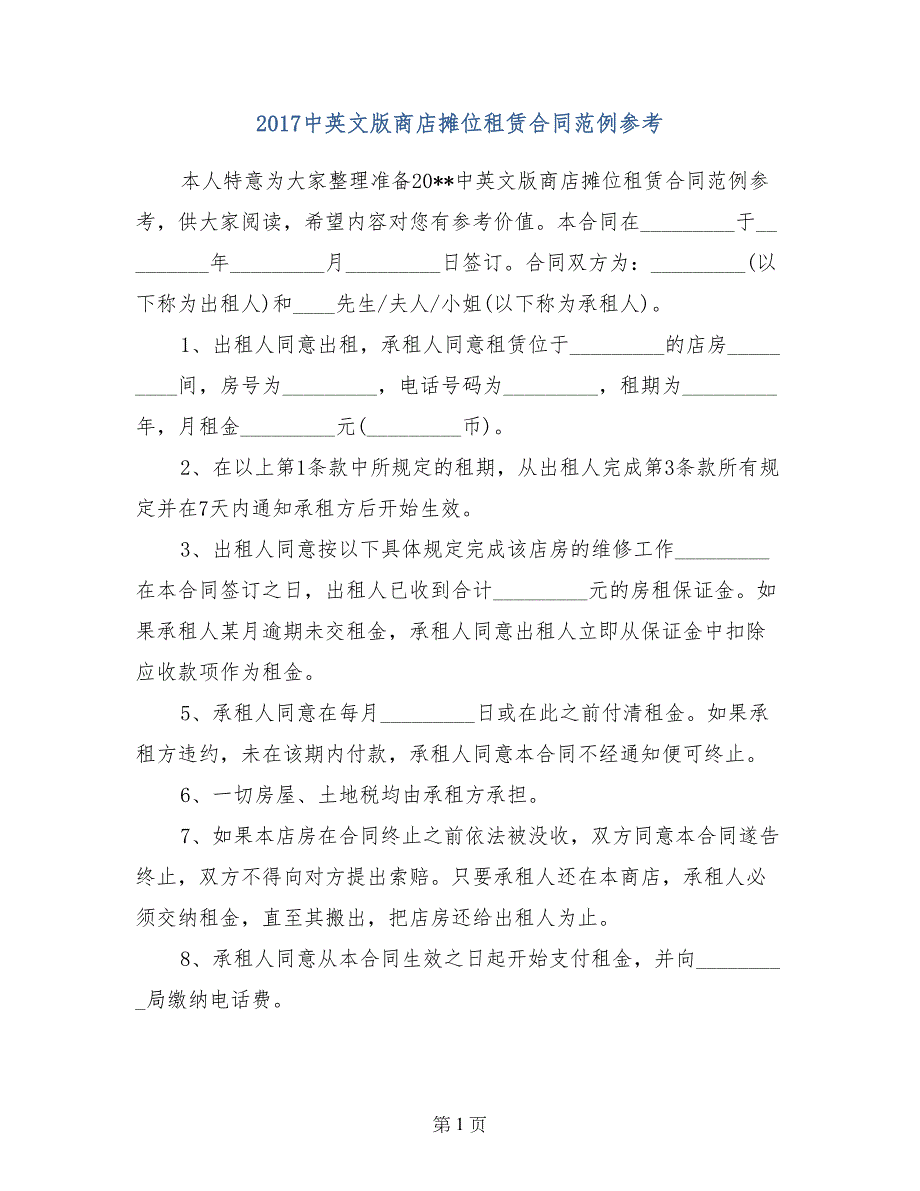 2017中英文版商店摊位租赁合同范例参考
本人特意为大家整理准备20**中英文版商店摊位租赁合同范例参
考，供大家阅读，希望内容对您有参考价值。本合同在_________于__
_______年_________月_________日签订。合同双方为：_________(以
下称为出租人)和____先生/夫人/小姐(以下称为承租人)。
1、出租人同意出租，承租人同意租赁位于_________的店房_____
____间，房号为_________，电话号码为_________，租期为_________
年，月租金_________元(_________币)。
2、在以上第1条款中所规定的租期，从出租人完成第3条款所有规
定并在7天内通知承租方后开始生效。
3、出租人同意按以下具体规定完成该店房的维修工作_________
在本合同签订之日，出租人已收到合计_________元的房租保证金。如
果承租人某月逾期未交租金，承租人同意出租人立即从保证金中扣除
应收款项作为租金。
5、承租人同意在每月_________日或在此之前付清租金。如果承
租方违约，未在该期内付款，承租人同意本合同不经通知便可终止。
6、一切房屋、土地税均由承租方承担。
7、如果本店房在合同终止之前依法被没收，双方同意本合同遂告
终止，双方不得向对方提出索赔。只要承租人还在本商店，承租人必
须交纳租金，直至其搬出，把店房还给出租人为止。
8、承租人同意从本合同生效之日起开始支付租金，并向________
_局缴纳电话费。
第 1 页